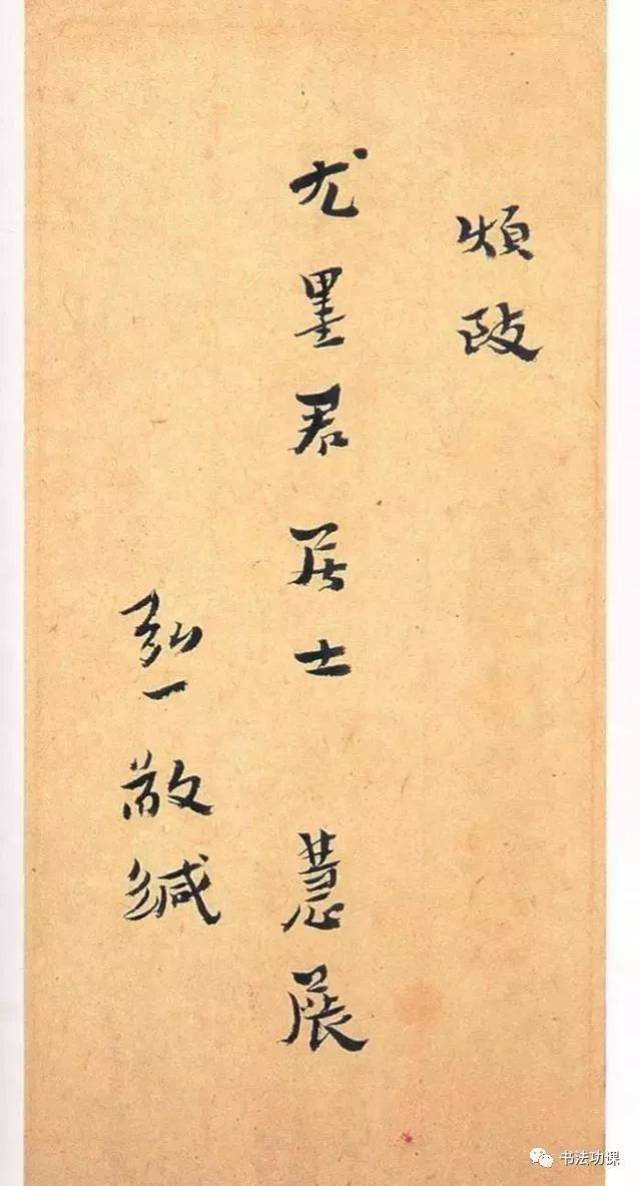 煩致
尤墨君居士 慧展
弘一敬緘
书法功课